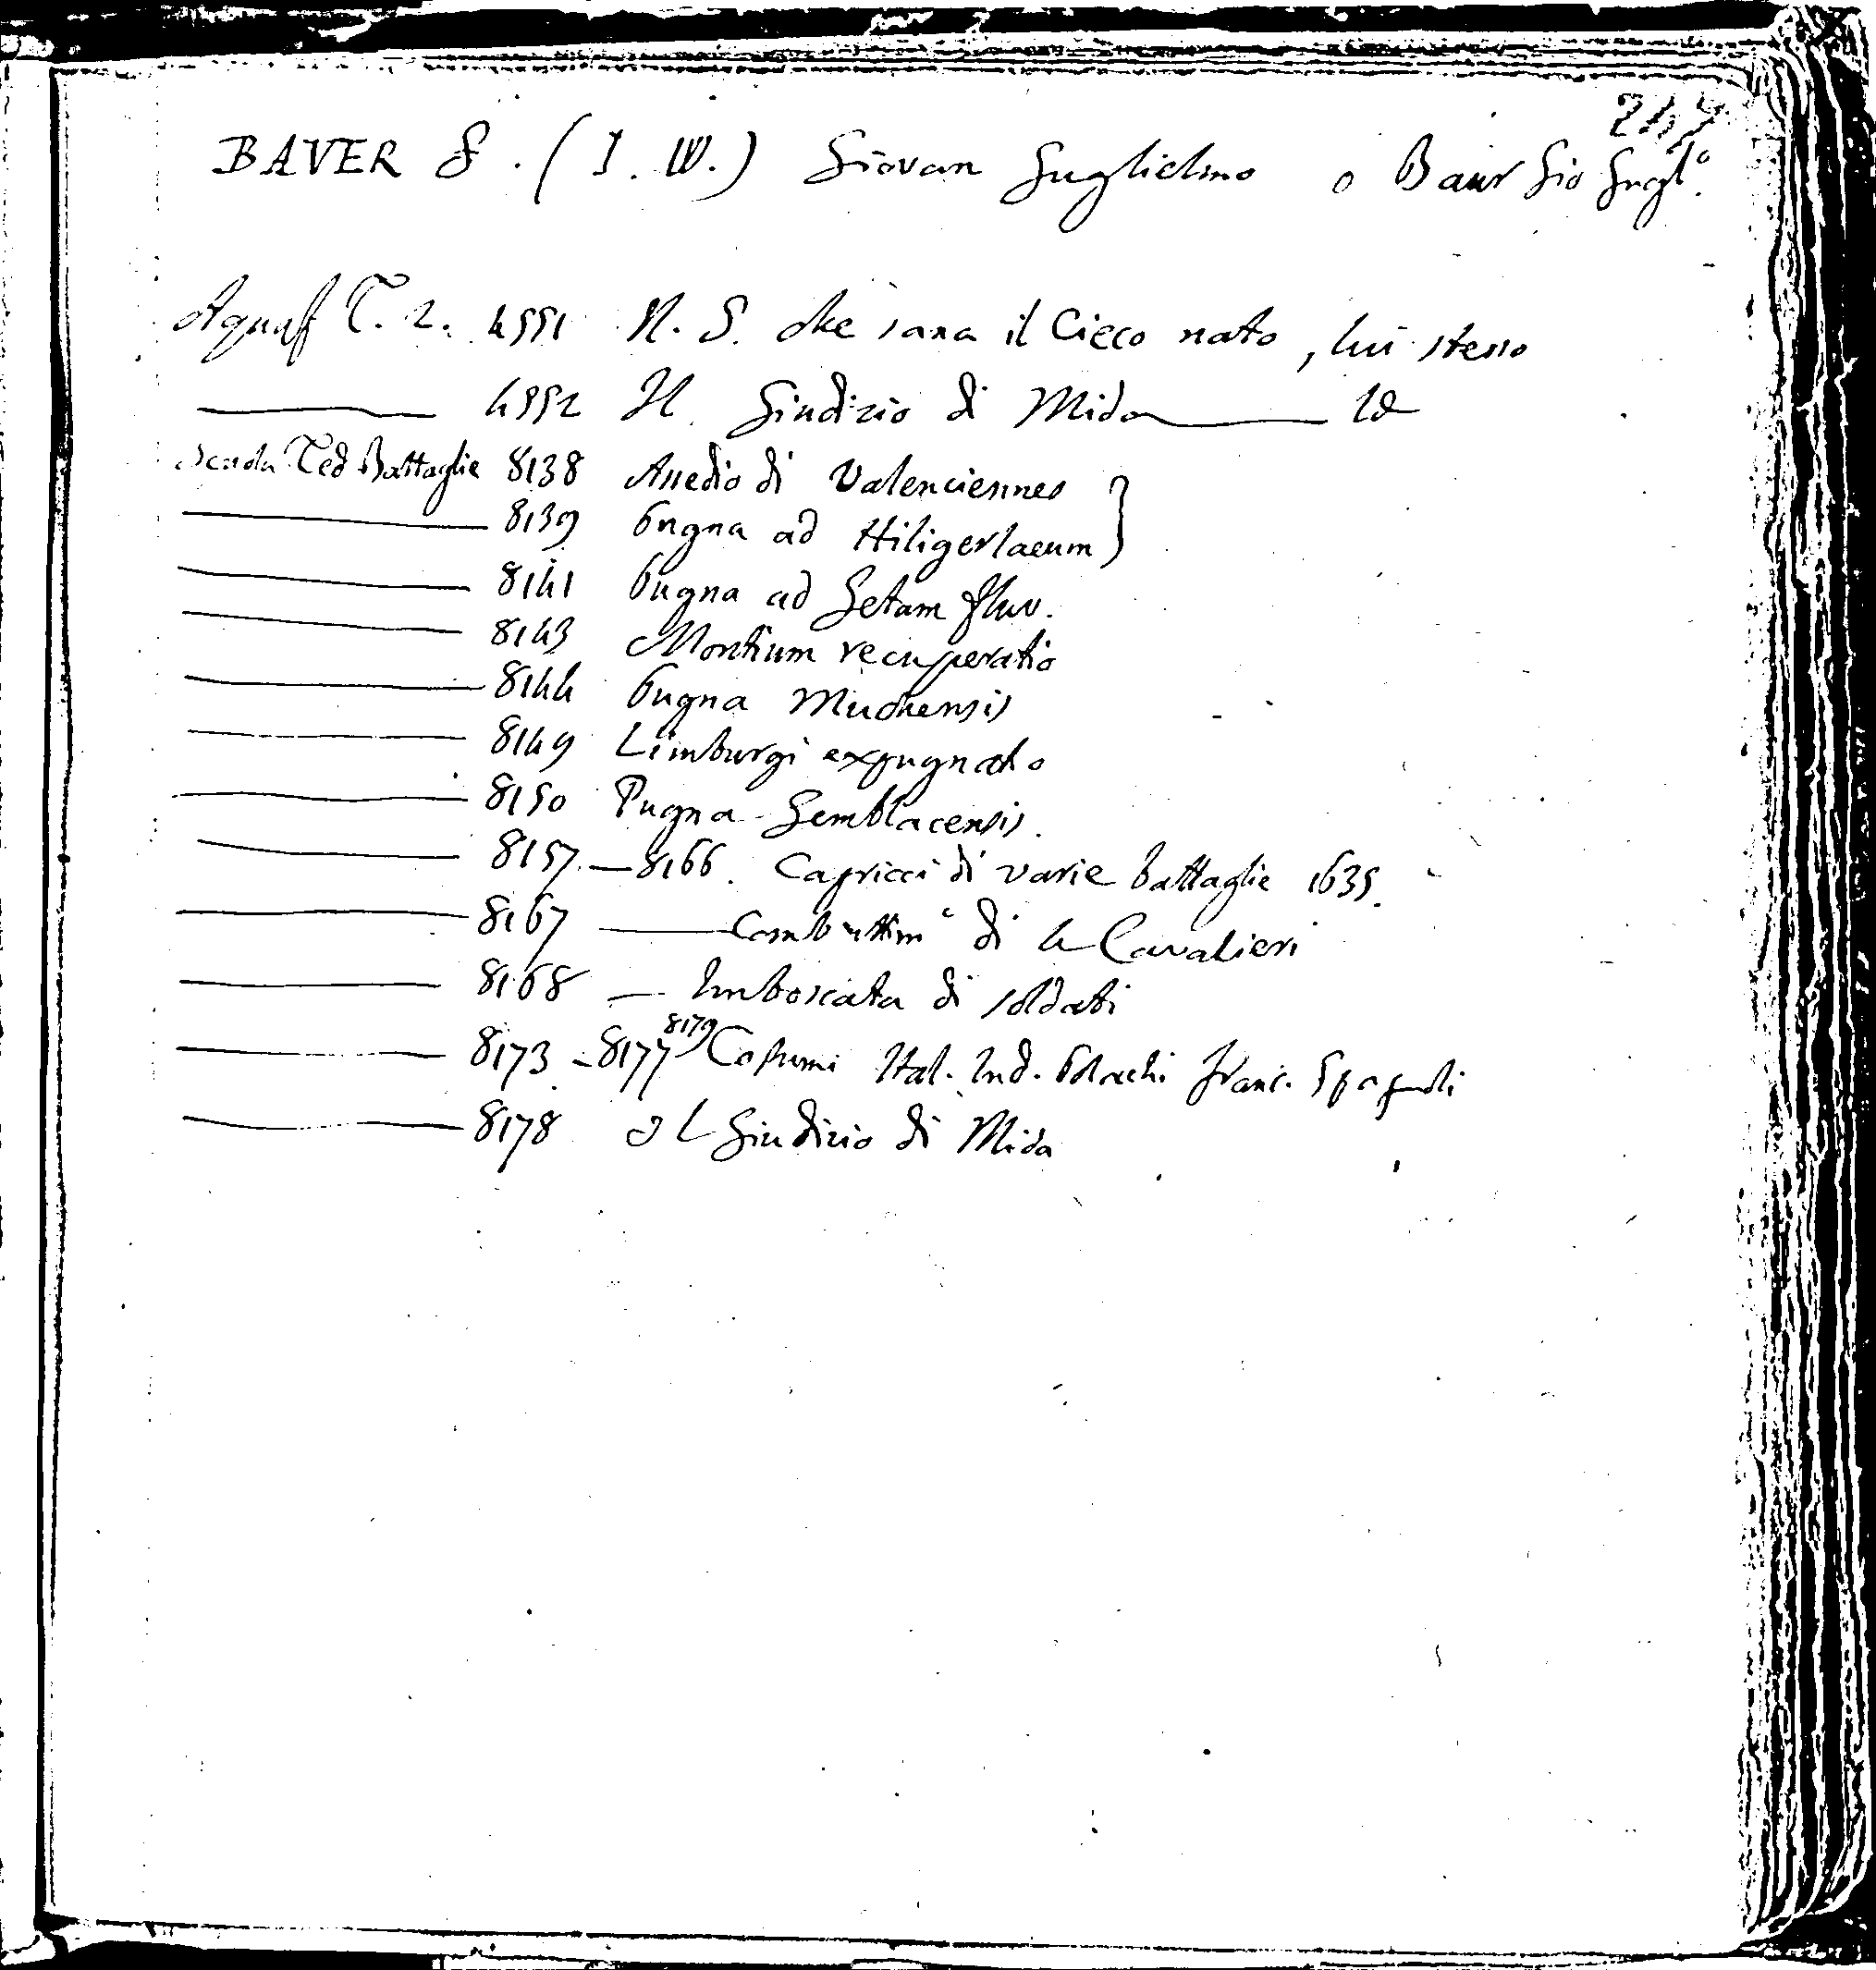 247
BAVER G. (I. W.) Giovan Guglielmo o Baur Gio Gugl.º
Aquaf T. 2. 4551 N. S. che sana il Cieco nato, lui stesso
4552 Il Giudizio di Mida Id
Scuola Ted Battaglie 8138 Assedio di Valenciennes
8139 Pugna ad Hiligerlaeum
8141 Pugna ad Getam fluv.
8143 Montium recuperatio
8144 Pugna Muchensis
8149 Limburgi expugnatio
8150 Pugna Gemblacensis.
8157 — 8166. Capricci di varie battaglie 1635.
8167 — Combattimº di 4 Cavalieri
8168 — Imboscata di soldati
8173 - 8177 8179 Costumi Ital. Ind. Polachi Franc. Spagnoli
8178 Il Giudizio di Mida